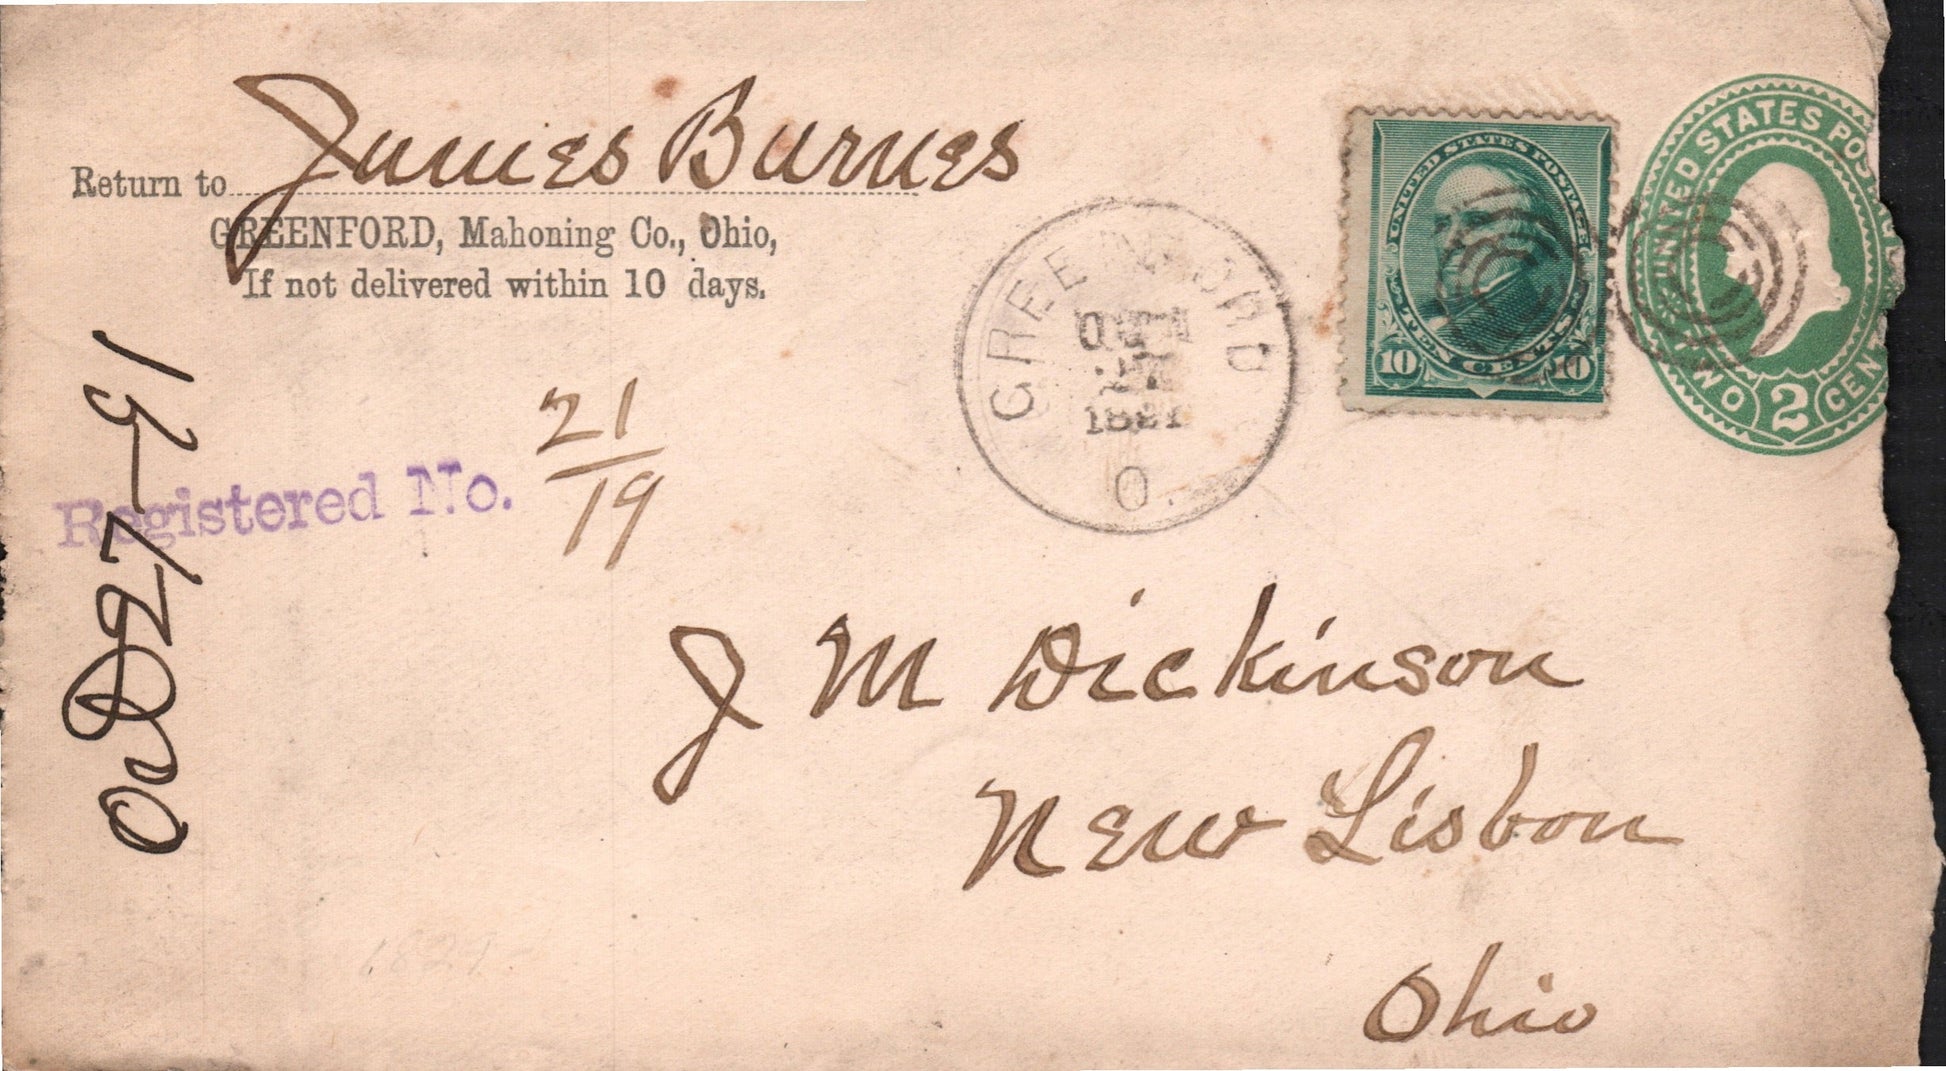 Return to James Burnes
GREENFORD, Mahoning Co., Ohio,
If not delivered within 10 days.
Registered No. 21
19
27-91
GREENFORD
1891
O.
UNITED STATES POSTAGE
TEN CENTS
10 10
UNITED STATES POSTAGE
TWO 2 CENT
J M Dickinson
New Lisbon
Ohio